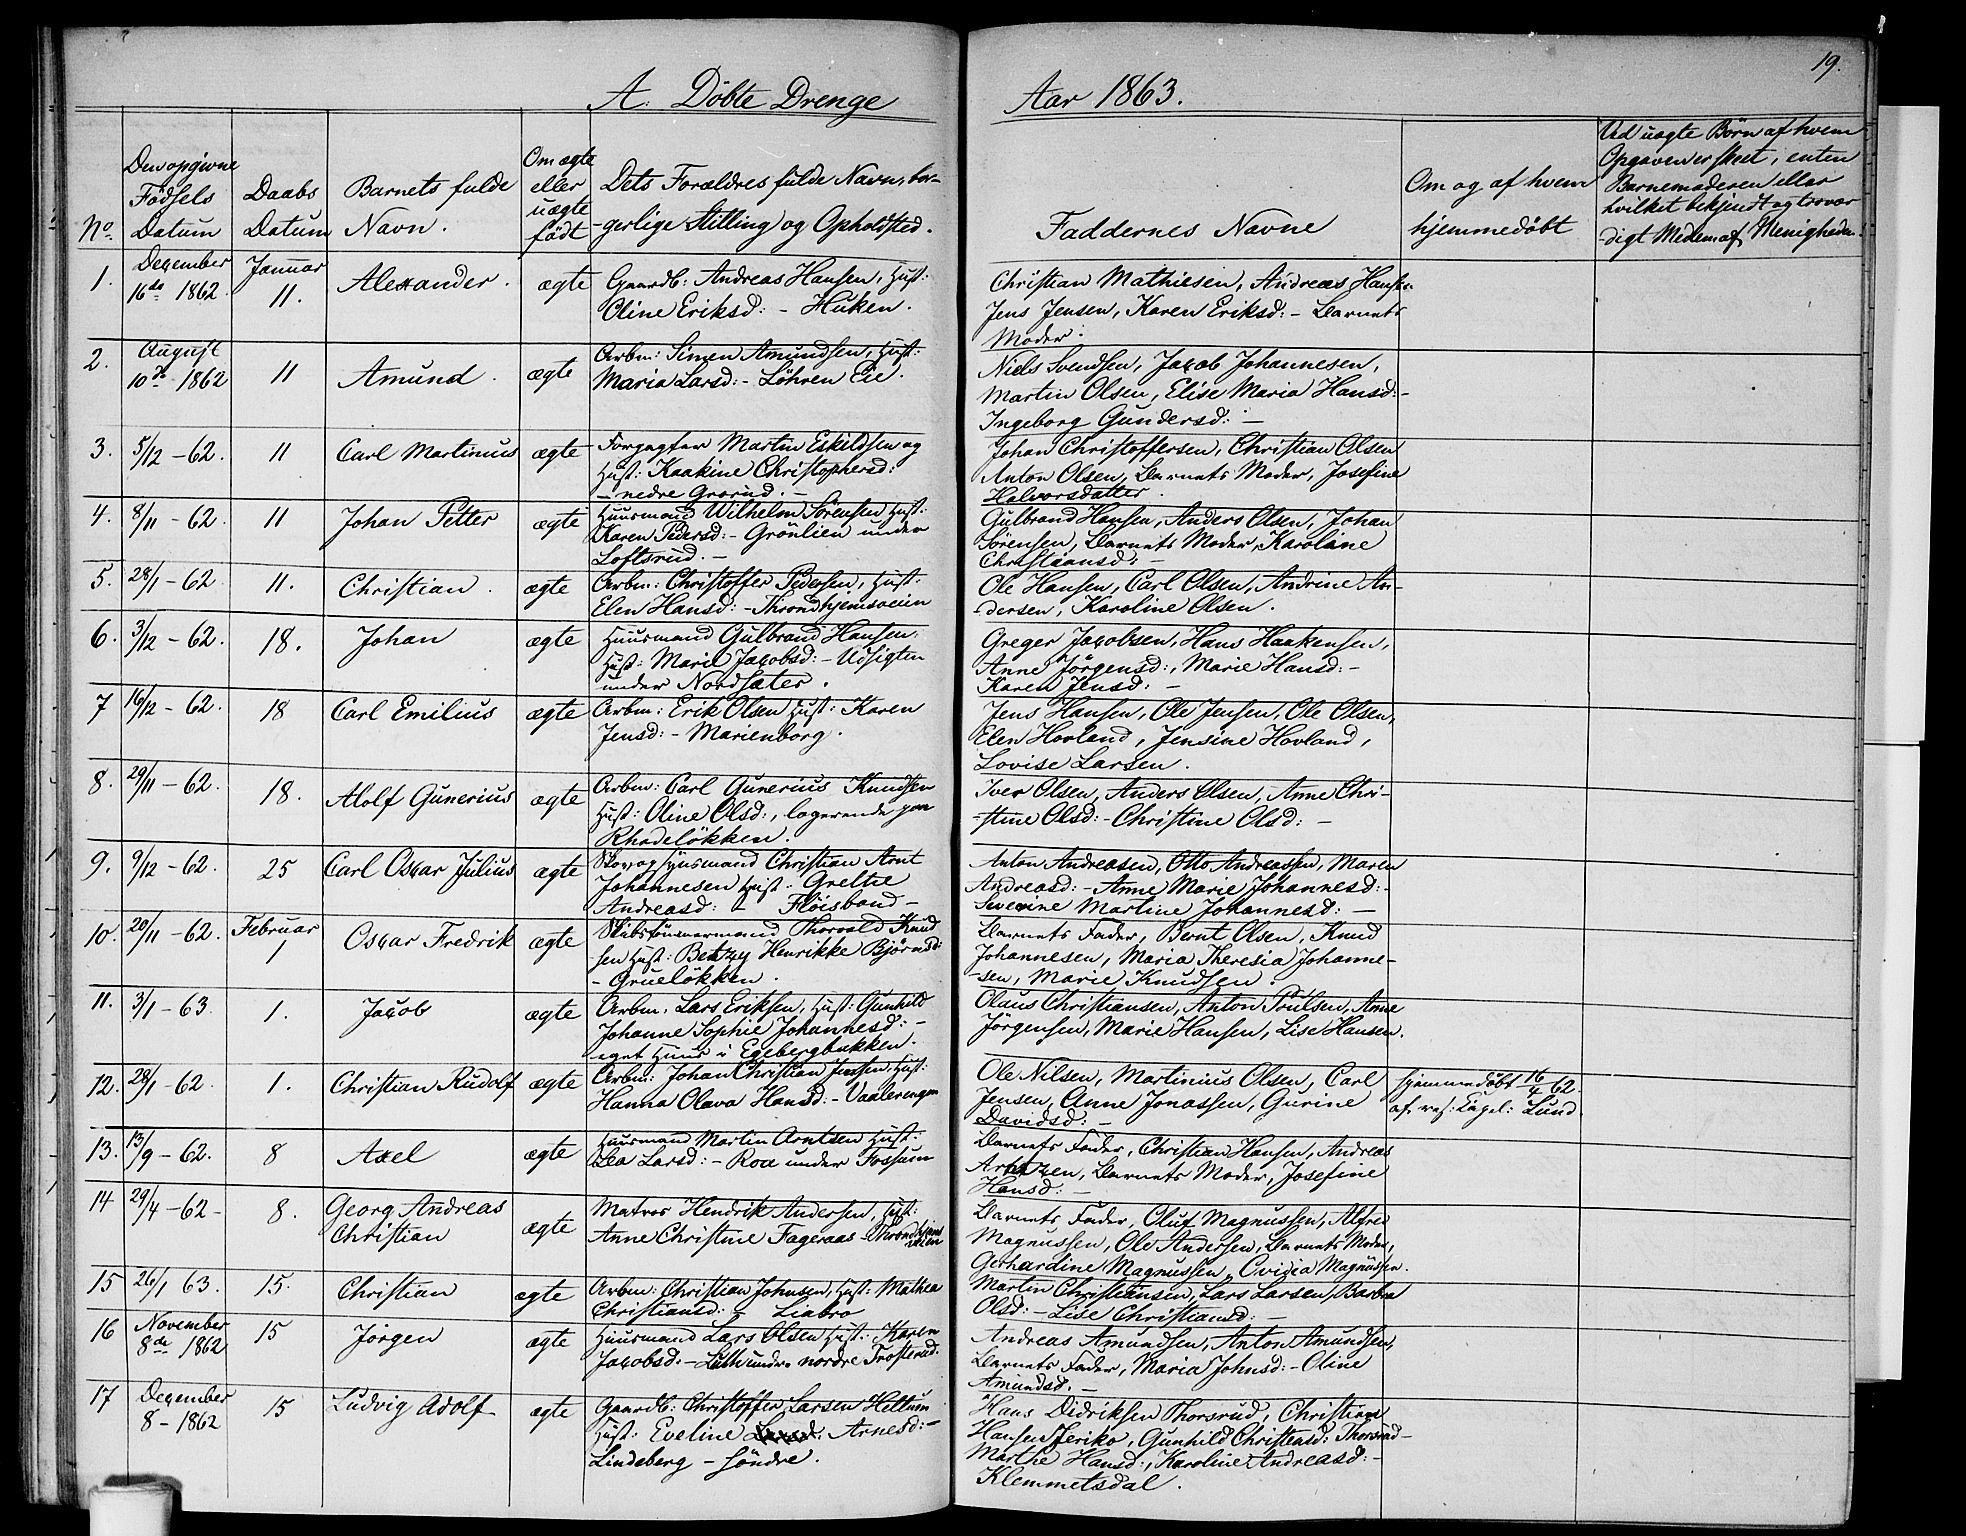 19.
A. Döbte Drenge Aar 1863.
No.
Den opgivne
Födsels
Datum
Daabs
Datum
Barnets fulde
Navn.
Om ægte
eller
uægte
födt
Dets Forældres fulde Navn, bor-
-gerlige Stilling og Opholdsted.
Faddernes Navne
Om og af hvem
hjemmedöbt
Ved uægte Börn af hvem
Opgaven er skeet, enten
Barnemoderen eller
hvilket bekjendt og trovær
-digt Medem af Menigheden.
1.
Dezember
16de 1862.
Januar
11.
Alexander.
ægte
Gaardb: Andreas Hansen, Hust:
Oline Eriksd: - Huken.
Christian Mathiesen, Andreas Hansen
Jens Jensen, Karen Eriksd: - Barnets
Moder.
2.
August
10de 1862
11
Amund.
ægte
Arbm: Simen Amundsen, Hust:
Maria Larsd: - Löhren Eie.
Niels Svendsen, Jacob Johannesen,
Martin Olsen, Elise Maria Hansd: -
Ingeborg Gundersd: -
3.
5/12 - 62.
11
Carl Martinius
ægte
Forpagter Martin Eskildsen og
Hust: Kaakine Christophersd:
- nedre Grorud. -
Johan Christoffersen, Christian Olsen
Anton Olsen, Barnets Moder, Josefine
Halvorsdatter.
4.
8/11 - 62.
11
Johan Petter
ægte
Huusmand Wilhelm Sörensen Hust:
Karen Pedersd: - Grönlien under
Loftsrud. -
Gulbrand Hansen, Anders Olsen, Johan
Sörensen, Barnets Moder, Karoline
Christiansd: -
5.
28/1 - 62.
11.
Christian.
ægte
Arbm: Christoffer Pedersen, Hust:
Elen Hansd: - Throndhjemsveien
Ole Hansen, Carl Olsen, Andrine An-
-dersen, Karoline Olsen.
6.
3/12 - 62.
18.
Johan
ægte
Huusmand Gulbrand Hansen.
Hust: Marie Jacobsd: - Udsigten
under Nordsæter.
Greger Jacobsen, Hans Haakensen,
Anne Jörgensd:, Marie Hansd: -
Karen Jensd: -
7
16/12 - 62.
18
Carl Emilius
ægte
Arbm: Erik Olsen Hust: Karen
Jensd: - Marienborg.
Jens Hansen, Ole Jensen, Ole Olsen,
Elen Hovland, Jensine Hovland,
Lovise Larsen.
8.
29/11 - 62.
18.
Alolf Gunerius
ægte
Arbm: Carl Gunerius Knudsen
Hust: Oline Olsd:, logerende paa
Rhodelökken.
Iver Olsen, Anders Olsen, Anne Chri-
-stine Olsd: - Christine Olsd: -
9.
9/12 - 62.
25
Carl Oscar Julius
ægte
Skovog Huusmand Christian Arnt
Johannesen Hust: Grethe
Andreasd: - Flöisbond -
Anton Andreasen, Otto Andreassen, Maren
Andreasd: - Anne Marie Johannesd: -
Severine Martine Johannesd: -
10.
20/11 - 62.
Februar
1
Oscar Fredrik
ægte
Skibstömmermand Thorvald Knud
sen Hust: Betzy Henrikke Björnsd:
- Gruelökken.
Barnets Fader, Bernt Olsen, Knud
Johannesen, Maria Theresia Johanne-
-sen, Marie Knudsen.
11.
3/1 - 63.
1.
Jacob
ægte
Arbm. Lars Eriksen, Hust: Gunhild
Johanne Sophie Johannesd: -
eget Huus i Egebergbakken.
Olaus Christiansen, Anton Poulsen, Anne
Jörgensen, Marie Hansen, Lise Hansen.
12.
28/1 - 62.
1.
Christian Rudolf
ægte
Arbm: Johan Christian Jenssen, Hust:
Hanna Olava Hansd: - Vaalerengen
Ole Nilsen, Martinius Olsen, Carl
Jensen, Anne Jonassen, Gurine
Davidsd: -
hjemmedöbt 16/4 62.
af res: Capel: Lund.
13.
13/9 - 62.
8
Axel
ægte
Huusmand Martin Arntsen Hust:
Lea Larsd: - Roa under Fossum
Barnets Fader, Christian Hansen, Andreas
Arntzen, Barnets Moder, Josefine
Hansd: -
14
29/4 - 62 -
8.
Georg Andreas
Christian
ægte
Matros Hendrik Andersen, Hust:
Anne Christine Fageraas - Throndhjems
veien
Barnets Fader, Oluf Magnussen, Alfred
Magnussen, Ole Andersen, Barnets Moder,
Gerhardine Magnussen, Ovidia Magnussen.
15
26/1 63.
15.
Christian
ægte
Arbm: Christian Johnsen, Hust: Mathea
Christiansd: - Liabro
Martin Christiansen, Lars Larsen, Barbra
Olsd: - Lise Christiansd: -
16
November
8de 1862
15
Jörgen
ægte
Huusmand Lars Olsen Hust: Karen
Jacobsd: - Luth under nordre Trosterud.
Andreas Amundsen, Anton Amundsen,
Barnets Fader, Maria Johnsd: - Oline
Amundsd. -
17
Dezember
8 - 1862
15
Ludvig Adolf
ægte
Gaardb: Christoffer Larsen Hellum
Hust: Eveline Arnesd: -
Lindeberg - söndre.
Hans Didriksen Thorsrud, Christian
Hansen Jeriko, Gunhild Christensd: Thorsrud -
Marthe Hansd:, Karoline Andreasd: -
Klemmetsdal.